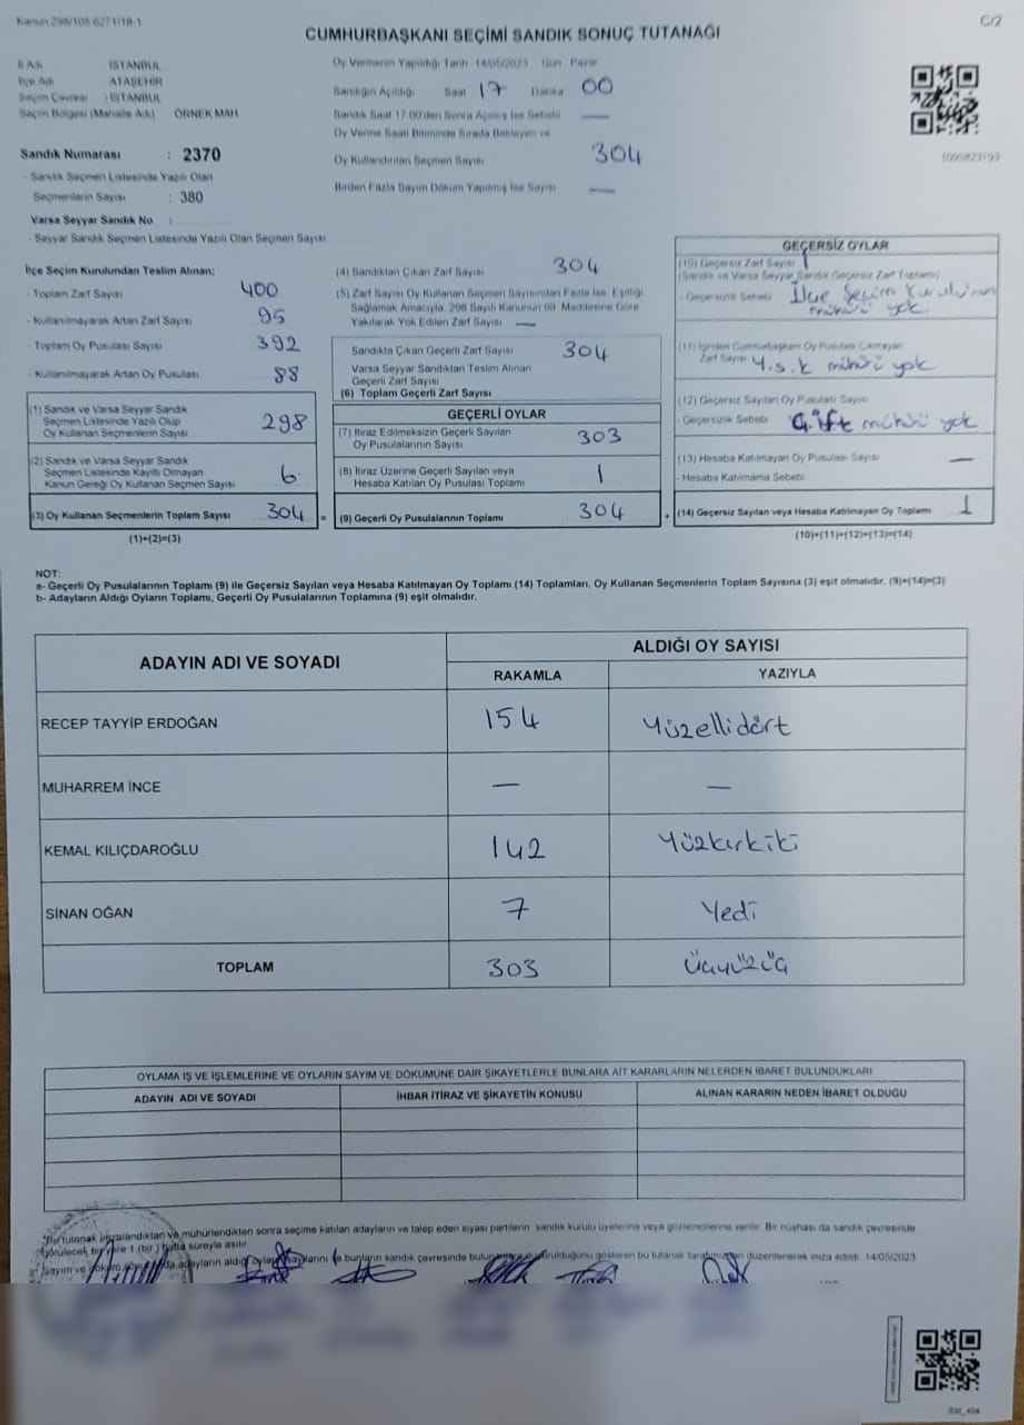 Kanun 298/105 6271/18-1
C/2
CUMHURBAŞKANI SEÇİMİ SANDIK SONUÇ TUTANAĞI
İl Adı : İSTANBUL
İlçe Adı : ATAŞEHİR
Seçim Çevresi : İSTANBUL
Seçim Bölgesi (Mahalle Adı) : ÖRNEK MAH
Sandık Numarası : 2370
- Sandık Seçmen Listesinde Yazılı Olan
Seçmenlerin Sayısı : 380
Varsa Seyyar Sandık No :
- Seyyar Sandık Seçmen Listesinde Yazılı Olan Seçmen Sayısı
Oy Vermenin Yapıldığı Tarih 14/05/2023 Gün Pazar
Sandığın Açıldığı Saat 17 Dakika 00
Sandık Saat 17.00'den Sonra Açılmış İse Sebebi —
Oy Verme Saati Bitiminde Sırada Bekleyen ve
Oy Kullandırılan Seçmen Sayısı 304
Birden Fazla Sayım Döküm Yapılmış İse Sayısı —
İlçe Seçim Kurulundan Teslim Alınan;
- Toplam Zarf Sayısı 400
- Kullanılmayarak Artan Zarf Sayısı 95
- Toplam Oy Pusulası Sayısı 392
- Kullanılmayarak Artan Oy Pusulası 88
(1) Sandık ve Varsa Seyyar Sandık
Seçmen Listesinde Yazılı Olup
Oy Kullanan Seçmenlerin Sayısı 298
(2) Sandık ve Varsa Seyyar Sandık
Seçmen Listesinde Kayıtlı Olmayan
Kanun Gereği Oy Kullanan Seçmen Sayısı 6
(3) Oy Kullanan Seçmenlerin Toplam Sayısı 304 =
(1)+(2)=(3)
(4) Sandıktan Çıkan Zarf Sayısı 304
(5) Zarf Sayısı Oy Kullanan Seçmen Sayısından Fazla İse, Eşitliği
Sağlamak Amacıyla, 298 Sayılı Kanunun 98. Maddesine Göre
Yakılarak Yok Edilen Zarf Sayısı —
Sandıkta Çıkan Geçerli Zarf Sayısı 304
Varsa Seyyar Sandıktan Teslim Alınan
Geçerli Zarf Sayısı
(6) Toplam Geçerli Zarf Sayısı
GEÇERLİ OYLAR
(7) İtiraz Edilmeksizin Geçerli Sayılan
Oy Pusulalarının Sayısı 303
(8) İtiraz Üzerine Geçerli Sayılan veya
Hesaba Katılan Oy Pusulası Toplamı 1
(9) Geçerli Oy Pusulalarının Toplamı 304 +
GEÇERSİZ OYLAR
(10) Geçersiz Zarf Sayısı
(Sandık ve Varsa Seyyar Sandık Geçersiz Zarf Toplamı)
- Geçersizlik Sebebi İlçe Seçim Kurulu'nun
mührü yok
(11) İçinden Cumhurbaşkanı Oy Pusulası Çıkmayan
Zarf Sayısı Y.s.k mührü yok
(12) Geçersiz Sayılan Oy Pusulası Sayısı
- Geçersizlik Sebebi Çift mührü yok
(13) Hesaba Katılmayan Oy Pusulası Sayısı —
- Hesaba Katılmama Sebebi
(14) Geçersiz Sayılan veya Hesaba Katılmayan Oy Toplamı 1
(10)+(11)+(12)+(13)=(14)
NOT:
a- Geçerli Oy Pusulalarının Toplamı (9) ile Geçersiz Sayılan veya Hesaba Katılmayan Oy Toplam (14) Toplamları, Oy Kullanan Seçmenlerin Toplam Sayısına (3) eşit olmalıdır. (9)+(14)=(3)
b- Adayların Aldığı Oyların Toplamı, Geçerli Oy Pusulalarının Toplamına (9) eşit olmalıdır.
ADAYIN ADI VE SOYADI
ALDIĞI OY SAYISI
RAKAMLA YAZIYLA
RECEP TAYYİP ERDOĞAN 154 Yüzellidört
MUHARREM İNCE — —
KEMAL KILIÇDAROĞLU 142 Yüzkırkiki
SİNAN OĞAN 7 Yedi
TOPLAM 303 Üçyüzüç
OYLAMA İŞ VE İŞLEMLERİNE VE OYLARIN SAYIM VE DÖKÜMÜNE DAİR ŞİKAYETLERLE BUNLARA AİT KARARLARIN NELERDEN İBARET BULUNDUKLARI
ADAYIN ADI VE SOYADI İHBAR İTİRAZ VE ŞİKAYETİN KONUSU ALINAN KARARIN NEDEN İBARET OLDUĞU
"Bu tutanak imzalandıktan ve mühürlendikten sonra seçime katılan adayların ve talep eden siyasi partilerin sandık kurulu üyelerine veya gözlemcilerine verilir. Bir nüshası da sandık çevresinde
hafta süreyle asılır.
Sayım ve döküm adayların aldığı bunların sandık çevresinde gösteren bu tutanak tarafımızdan düzenlenerek imza edildi. 14/05/2023